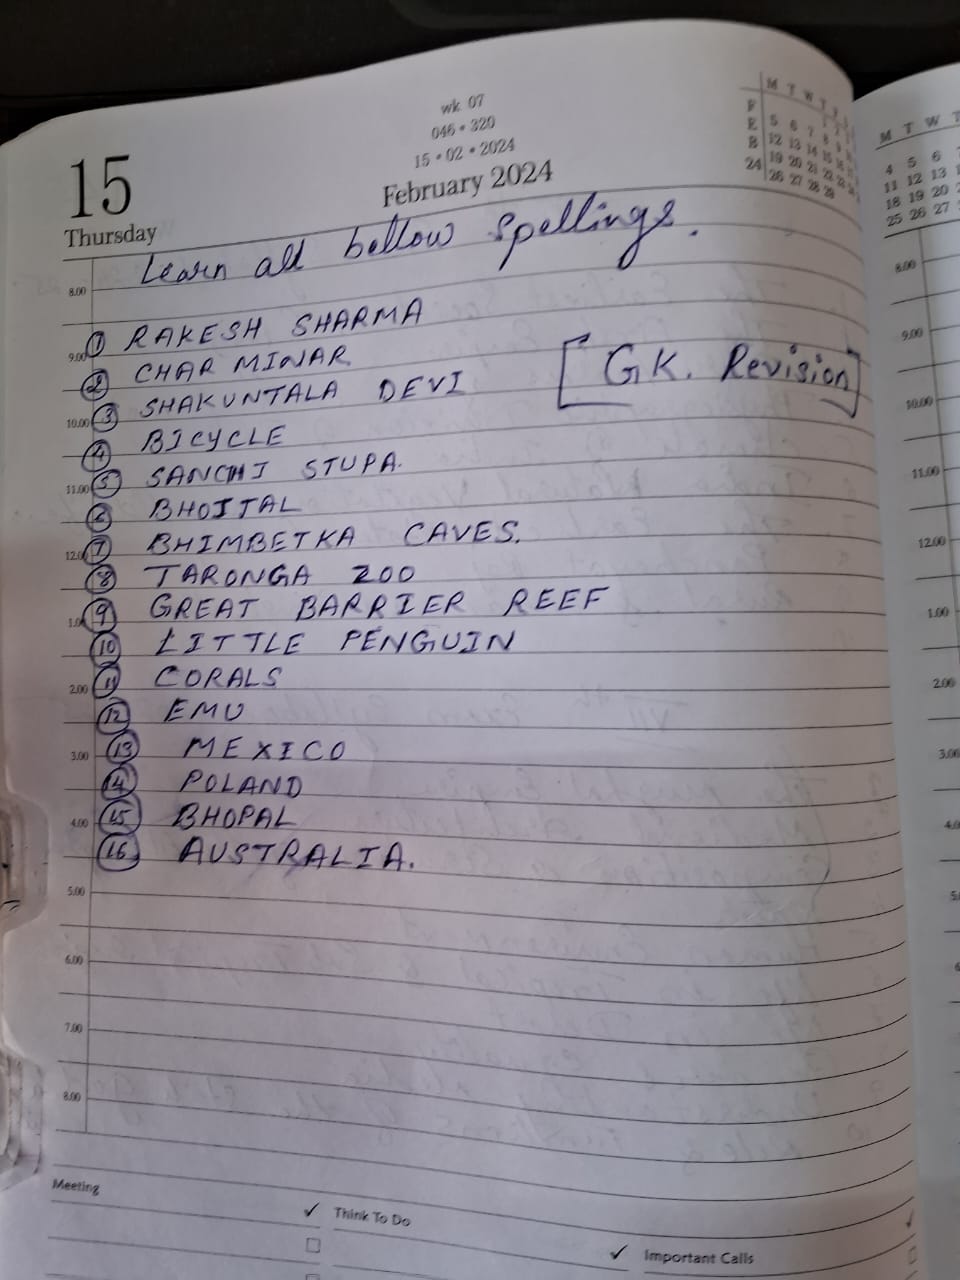 wk. 07
046 • 320
15 • 02 • 2024
February 2024
15
Thursday
M T W T
F 5 6 7 8 9
E 12 13 14 15 16
B 19 20 21 22 23
24 26 27 28 29
M T W T
4 5 6
11 12 13
18 19 20
25 26 27
Learn all bellow spellings.
8.00
① RAKESH SHARMA
9.00
② CHAR MINAR
[GK. Revision]
③ SHAKUNTALA DEVI
10.00
④ BICYCLE
⑤ SANCHI STUPA.
11.00
⑥ BHOJTAL
⑦ BHIMBETKA CAVES.
12.00
⑧ TARONGA ZOO
⑨ GREAT BARRIER REEF
1.00
⑩ LITTLE PENGUIN
⑪ CORALS
2.00
⑫ EMU
⑬ MEXICO
3.00
⑭ POLAND
⑮ BHOPAL
4.00
⑯ AUSTRALIA.
5.00
6.00
7.00
8.00
8.00
9.00
10.00
11.00
12.00
1.00
2.00
3.00
Meeting
✓ Think To Do
✓ Important Calls